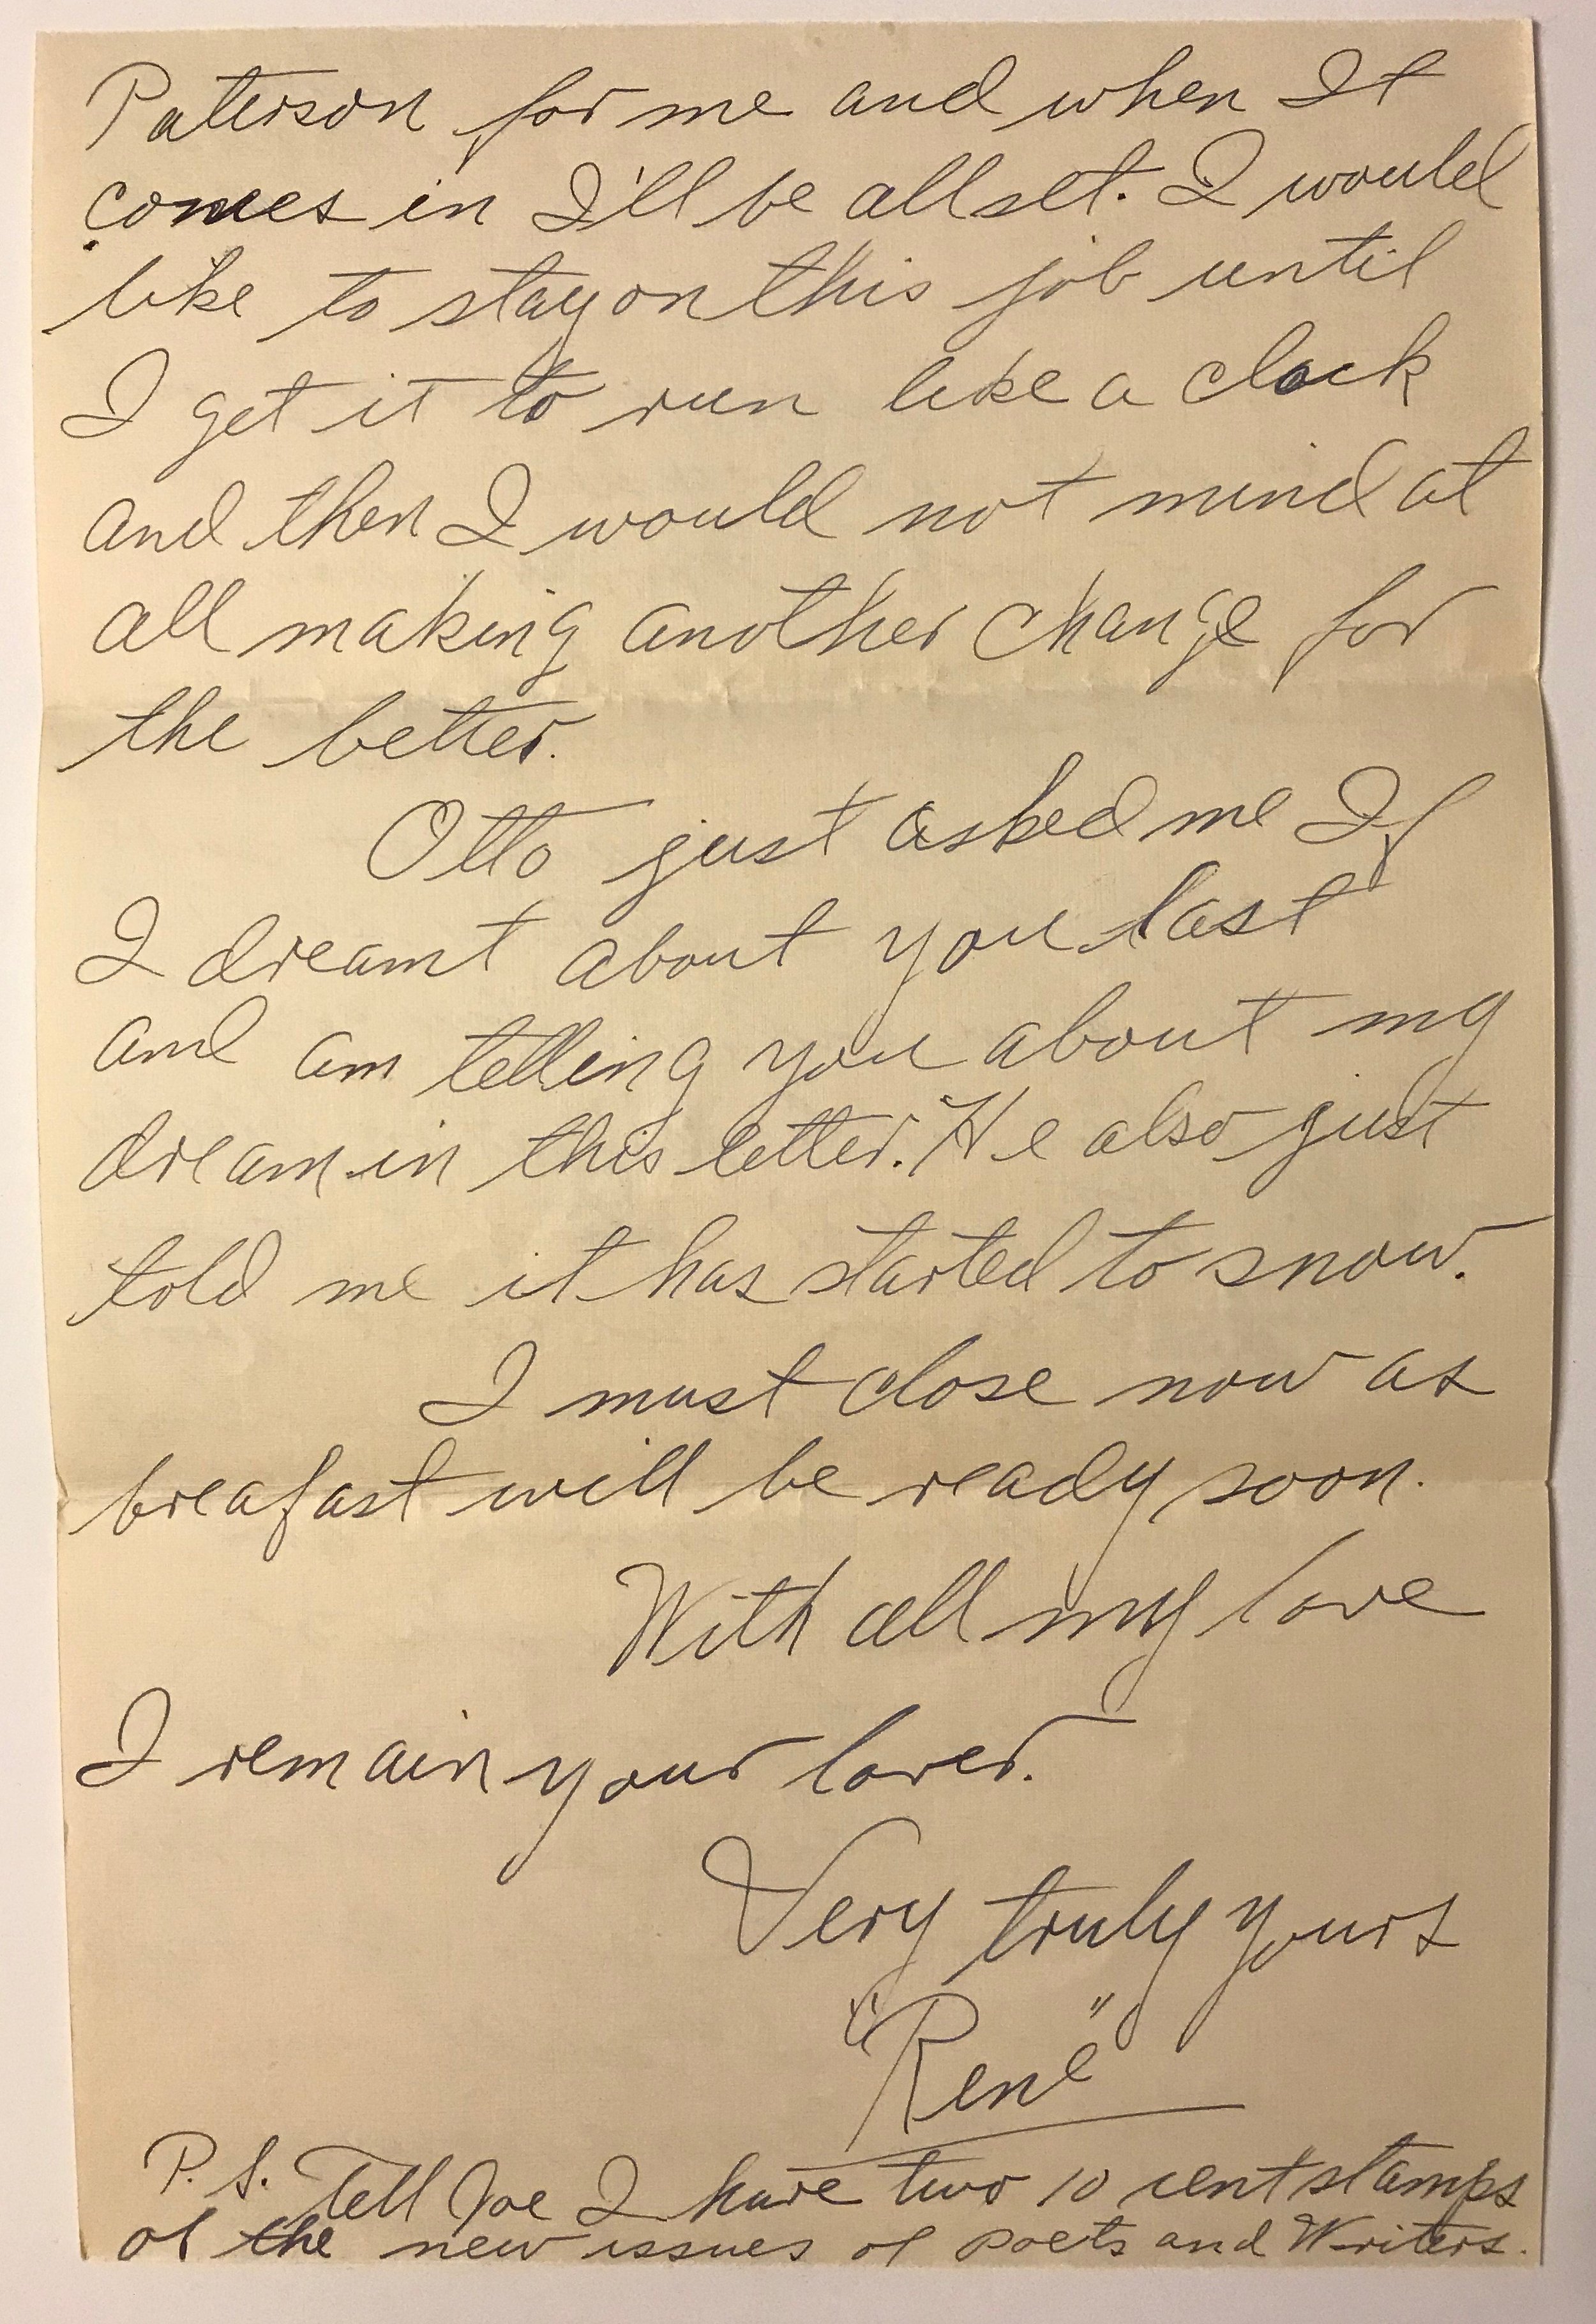 Paterson for me and when It
comes in I'll be all set. I would
like to stay on this job until
I get it to run like a clock
and then I would not mind at
all making another change for
the better.
Otto just asked me If
I dreamt about you last
and am telling you about my
dream in this letter. He also just
told me it has started to snow.
I must close now as
breafast will be ready soon.
With all my love
I remain your lover.
Very truly yours
"René"
P.S. Tell Joe I have two 10 cent stamps
of the new issues of poets and Writers.